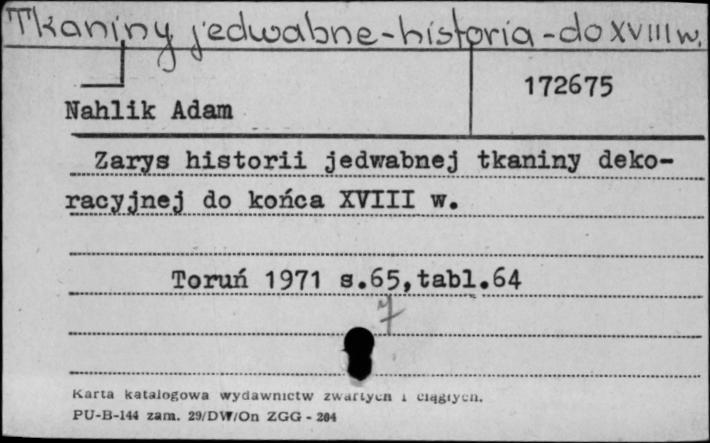 Tkaniny jedwabne-historia-do XVIII w.
172675
Nahlik Adam
Zarys historii jedwabnej tkaniny deko-
racyjnej do końca XVIII w.
Toruń 1971 s.65,tabl.64
Karta katalogowa wydawnictw zwartych i ciągłych.
PU-B-144 zam. 29/DW/On ZGG - 204